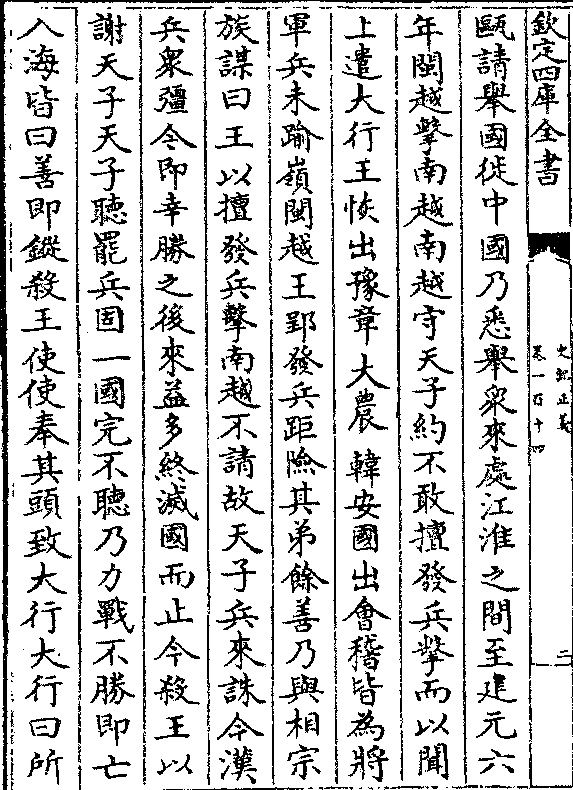 欽定四庫全書
史記正義
卷一百十四
二
甌請舉國徙中國乃悉舉衆來處江淮之間至建元六
年閩越擊南越南越守天子約不敢擅發兵擊而以聞
上遣大行王恢出豫章大農韓安國出會稽皆為將
軍兵未踰嶺閩越王郢發兵距險其弟餘善乃與相宗
族謀曰王以擅發兵擊南越不請故天子兵來誅今漢
兵衆彊今即幸勝之後來益多終滅國而止今殺王以
謝天子天子聽罷兵固一國完不聽乃力戰不勝即亡
入海皆曰善即鏦殺王使使奉其頭致大行大行曰所